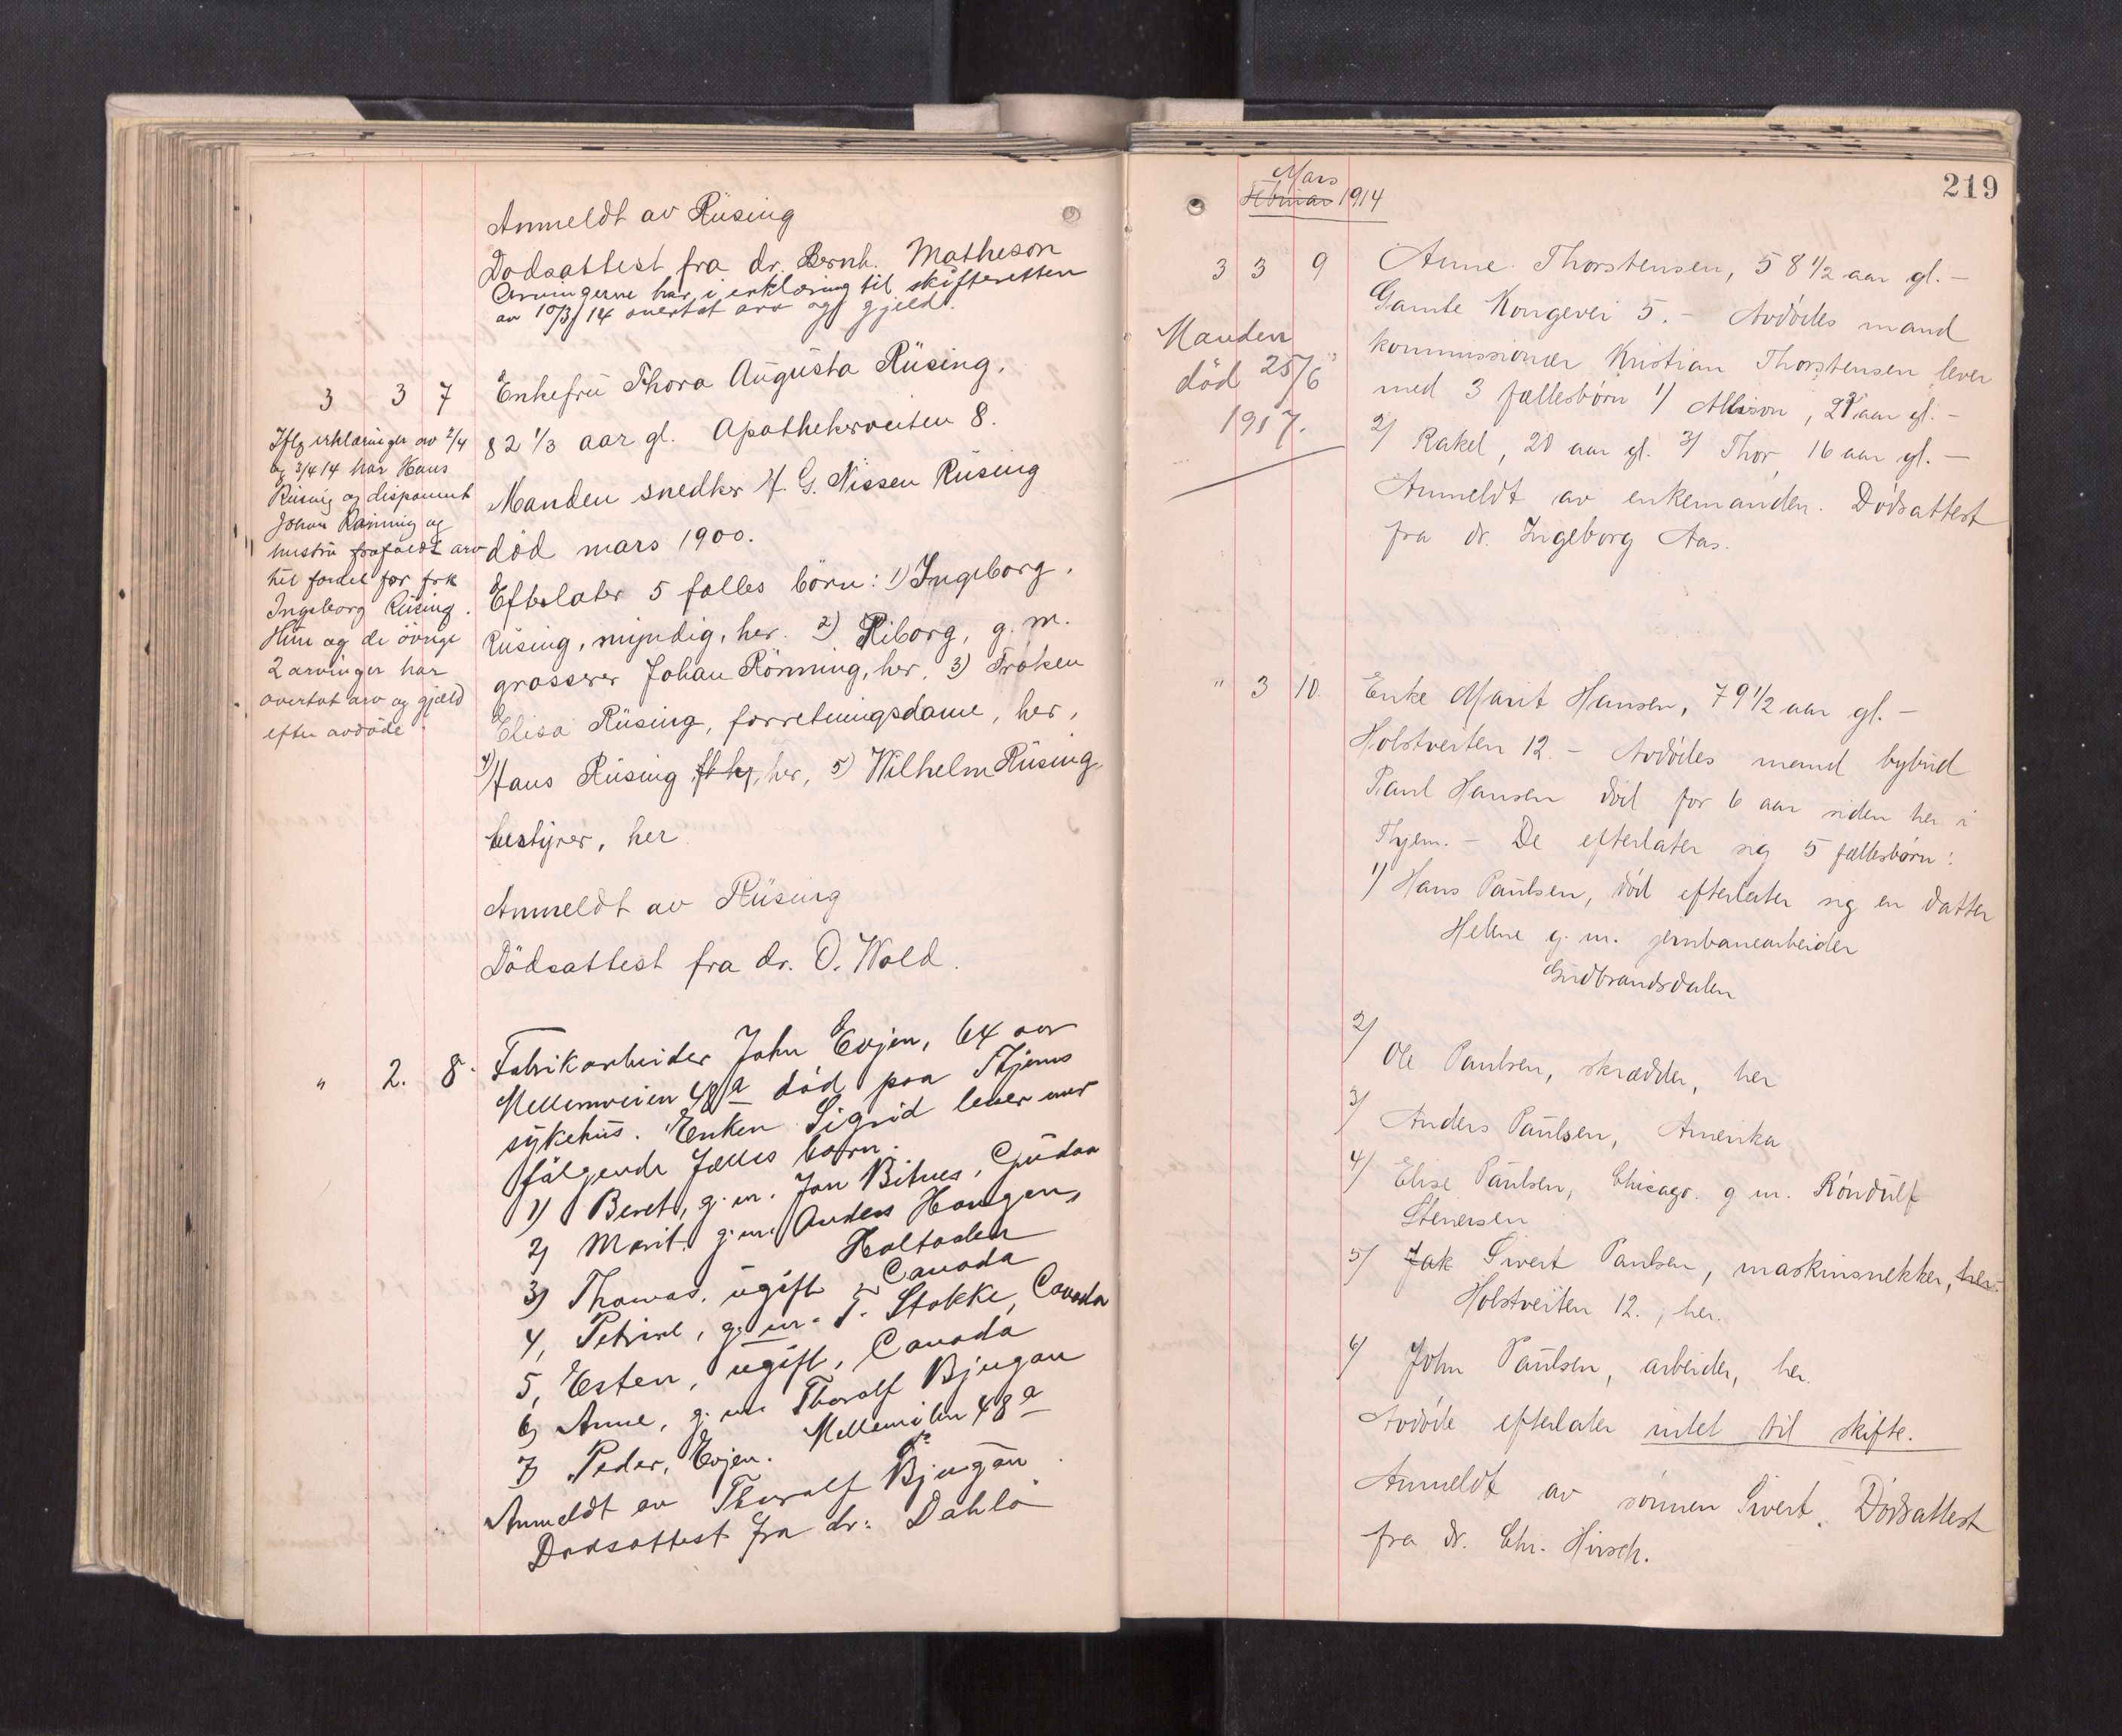 Anmeldt av Rüsing
Dödsattest fra dr. Bernh. Matheson
Arvingerne har i erklæring til skifteretten
av 10/3/14 overtat arv og gjeld.
3 3 7
Enkefru Thora Augusta Rüsing,
82 1/3 aar gl. Apothekerveiten 8.
Manden snedker H. G. Nissen Rüsing
död mars 1900.
Efterlater 5 fælles börn: 1) Ingeborg
Rüsing, myndig, her. 2) Riborg, g. m.
grosserer Johan Rönning, her. 3) Fröken
Elisa Rüsing, forretningsdame, her,
4) Hans Rüsing, her, 5) Wilhelm Rüsing,
bestyrer, her
Iflg erklæringer av 2/4
og 3/4 14 har Hans
Rüsing og disponent
Johan Rönning og
hustru frafaldt arv
til fordel for frk
Ingeborg Rüsing.
Hun og de övrige
2 arvinger har
overtat arv og gjæld
efter avdöde.
Anmeldt av Rüsing
Dödsattest fra dr. O. Wold.
" 2. 8.
Fabrikarbeider John Evjen, 64 aar
Mellemveien 48a död paa Thjems
sykehus. Enken Sigrid lever med
fölgende fælles börn.
1) Beret, g. m. Jon Bitnes, Gudaa
2) Marit. g. m. Anders Haugen,
Holtaalen
3) Thomas, ugift Canada
4, Petrine, g. m. T. Stokke, Canada
5, Esten, ugift, Canada
6) Anne, g. m. Thoralf Bjugan
7) Peder, Evjen. Mellemveien 48a
Anmeldt av Thoralf Bjugan
Dödsattest fra dr. Dahlö
219
Mars
Februar 1914
3 3 9
Anne Thorstensen, 58 1/2 aar gl. -
Gamle Kongevei 5. - Avdödes mand
kommissionær Kristian Thorstensen lever
med 3 fællesbörn 1) Allison, aar gl. -
2) Rakel, 20 aar gl. 3) Thor, 16 aar gl. -
Anmeldt av enkemanden. Dödsattest
fra dr. Ingeborg Aas.
Manden
död 25/6
1917.
" 3 10.
Enke Marit Hansen, 79 1/2 aar gl. -
Holstveiten 12. - Avdödes mand bybud
Paul Hansen död for 6 aar siden her i
Thjem. - De efterlater sig 5 fællesbörn:
1) Hans Paulsen, död efterlater sig en datter
Helene g. m. jernbanearbeider
Gudbrandsdalen
2)
Ole Paulsen, skrædder, her
3) Anders Paulsen, Amerika
4) Elise Paulsen, Chicago. g. m. Röndulf
Stenersen
5) Jak Sivert Paulsen, maskinsnekker, her.
Holstveiten 12., her.
6) John Paulsen, arbeider, her.
Avdöde efterlater intet til skifte.
Anmeldt av sönnen Sivert. Dödsattest
fra dr. Chr. Hirsch.